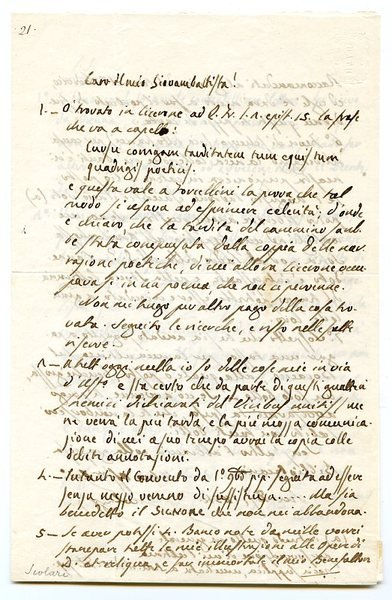 21.
Caro il mio Giovambattista!
1. – O trovato in Cicerone ad Q. Fr. epist. 15. la frase
che va a capello:
Cursu corrigam tarditatem tum equis tum
quadrigis poeticis.
e questa vale a Forcellini la prova che tal
modo si usava ad esprimere celerità; d'onde
è chiaro che la tardità del cammino sareb
be stata compensata dalla coppia delle nar
razioni poetiche, di cui allora Cicerone occu
pavasi in un poema che non ci pervenne.
Non mi tengo per altro pago della cosa tro
vata. Seguito le ricerche, e sto nelle
riserve.
A tutt'oggi nulla io so delle cose mie in via
d' e sta certo che da parte di questi
nemici dichiarati del me
ne verrà la più tarda e la più mozza comunica
zione di cui a suo tempo avrai la copia colle
debite annotazioni.
4. – Intanto il Convento da 1° pp. seguita ad essere
senza mezzo veruno di sussistenza.... Ma sia
benedetto il SIGNORE che non ci abbandona.
5 – Se aver potessi 4. Banco note da mille vorrei
stampar tutte le mie illustrazioni alle Opere di
D. et reliqua e far immortale il mio Benefattor
Scolari